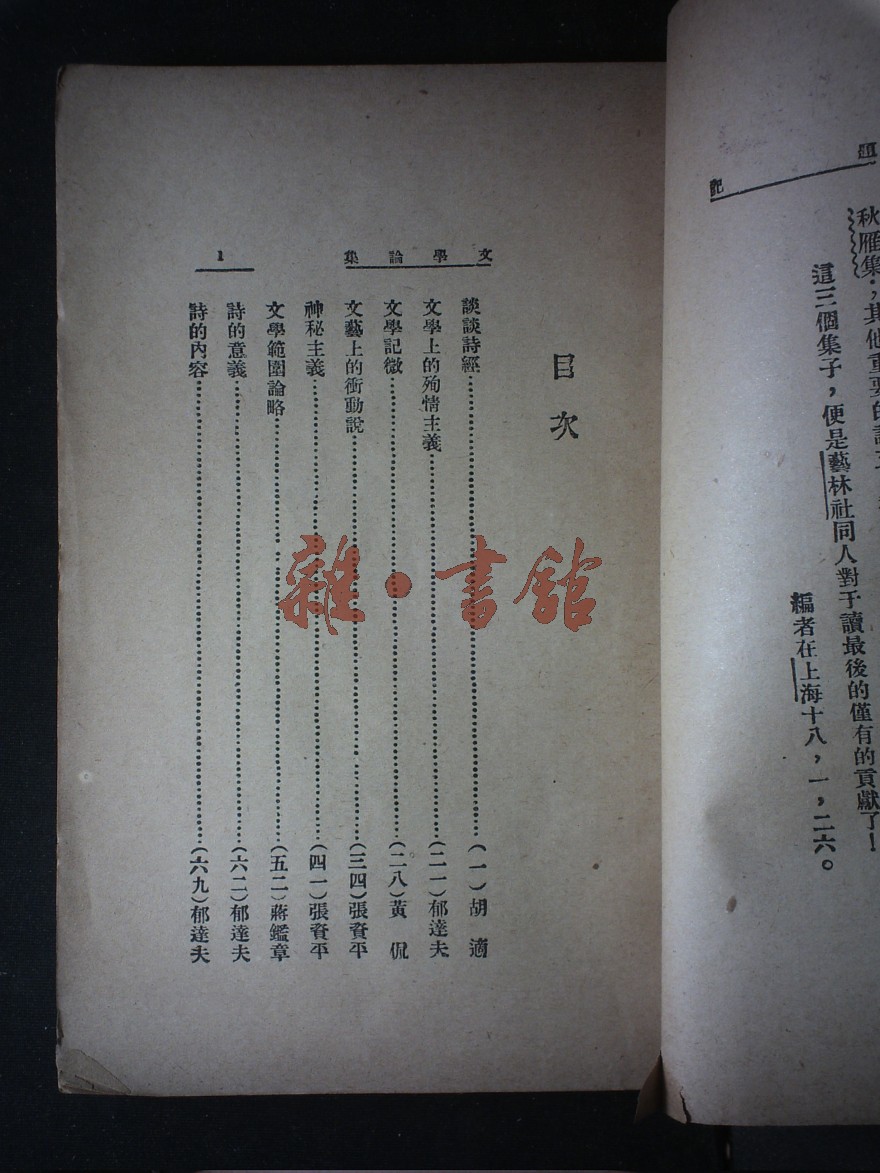 題記
秋雁集；其他重要的
這三個集子，便是藝林社同人對于讀最後的僅有的貢獻了！
編者在上海十八，一，二六。
文學論集
目次
談談詩經（一）胡適
文學上的殉情主義（二一）郁達夫
文學記微（二八）黃侃
文藝上的衝動說（三四）張資平
神秘主義（四一）張資平
文學範圍論略（五二）蔣鑑章
詩的意義（六二）郁達夫
詩的內容（六九）郁達夫
1
雜·書館